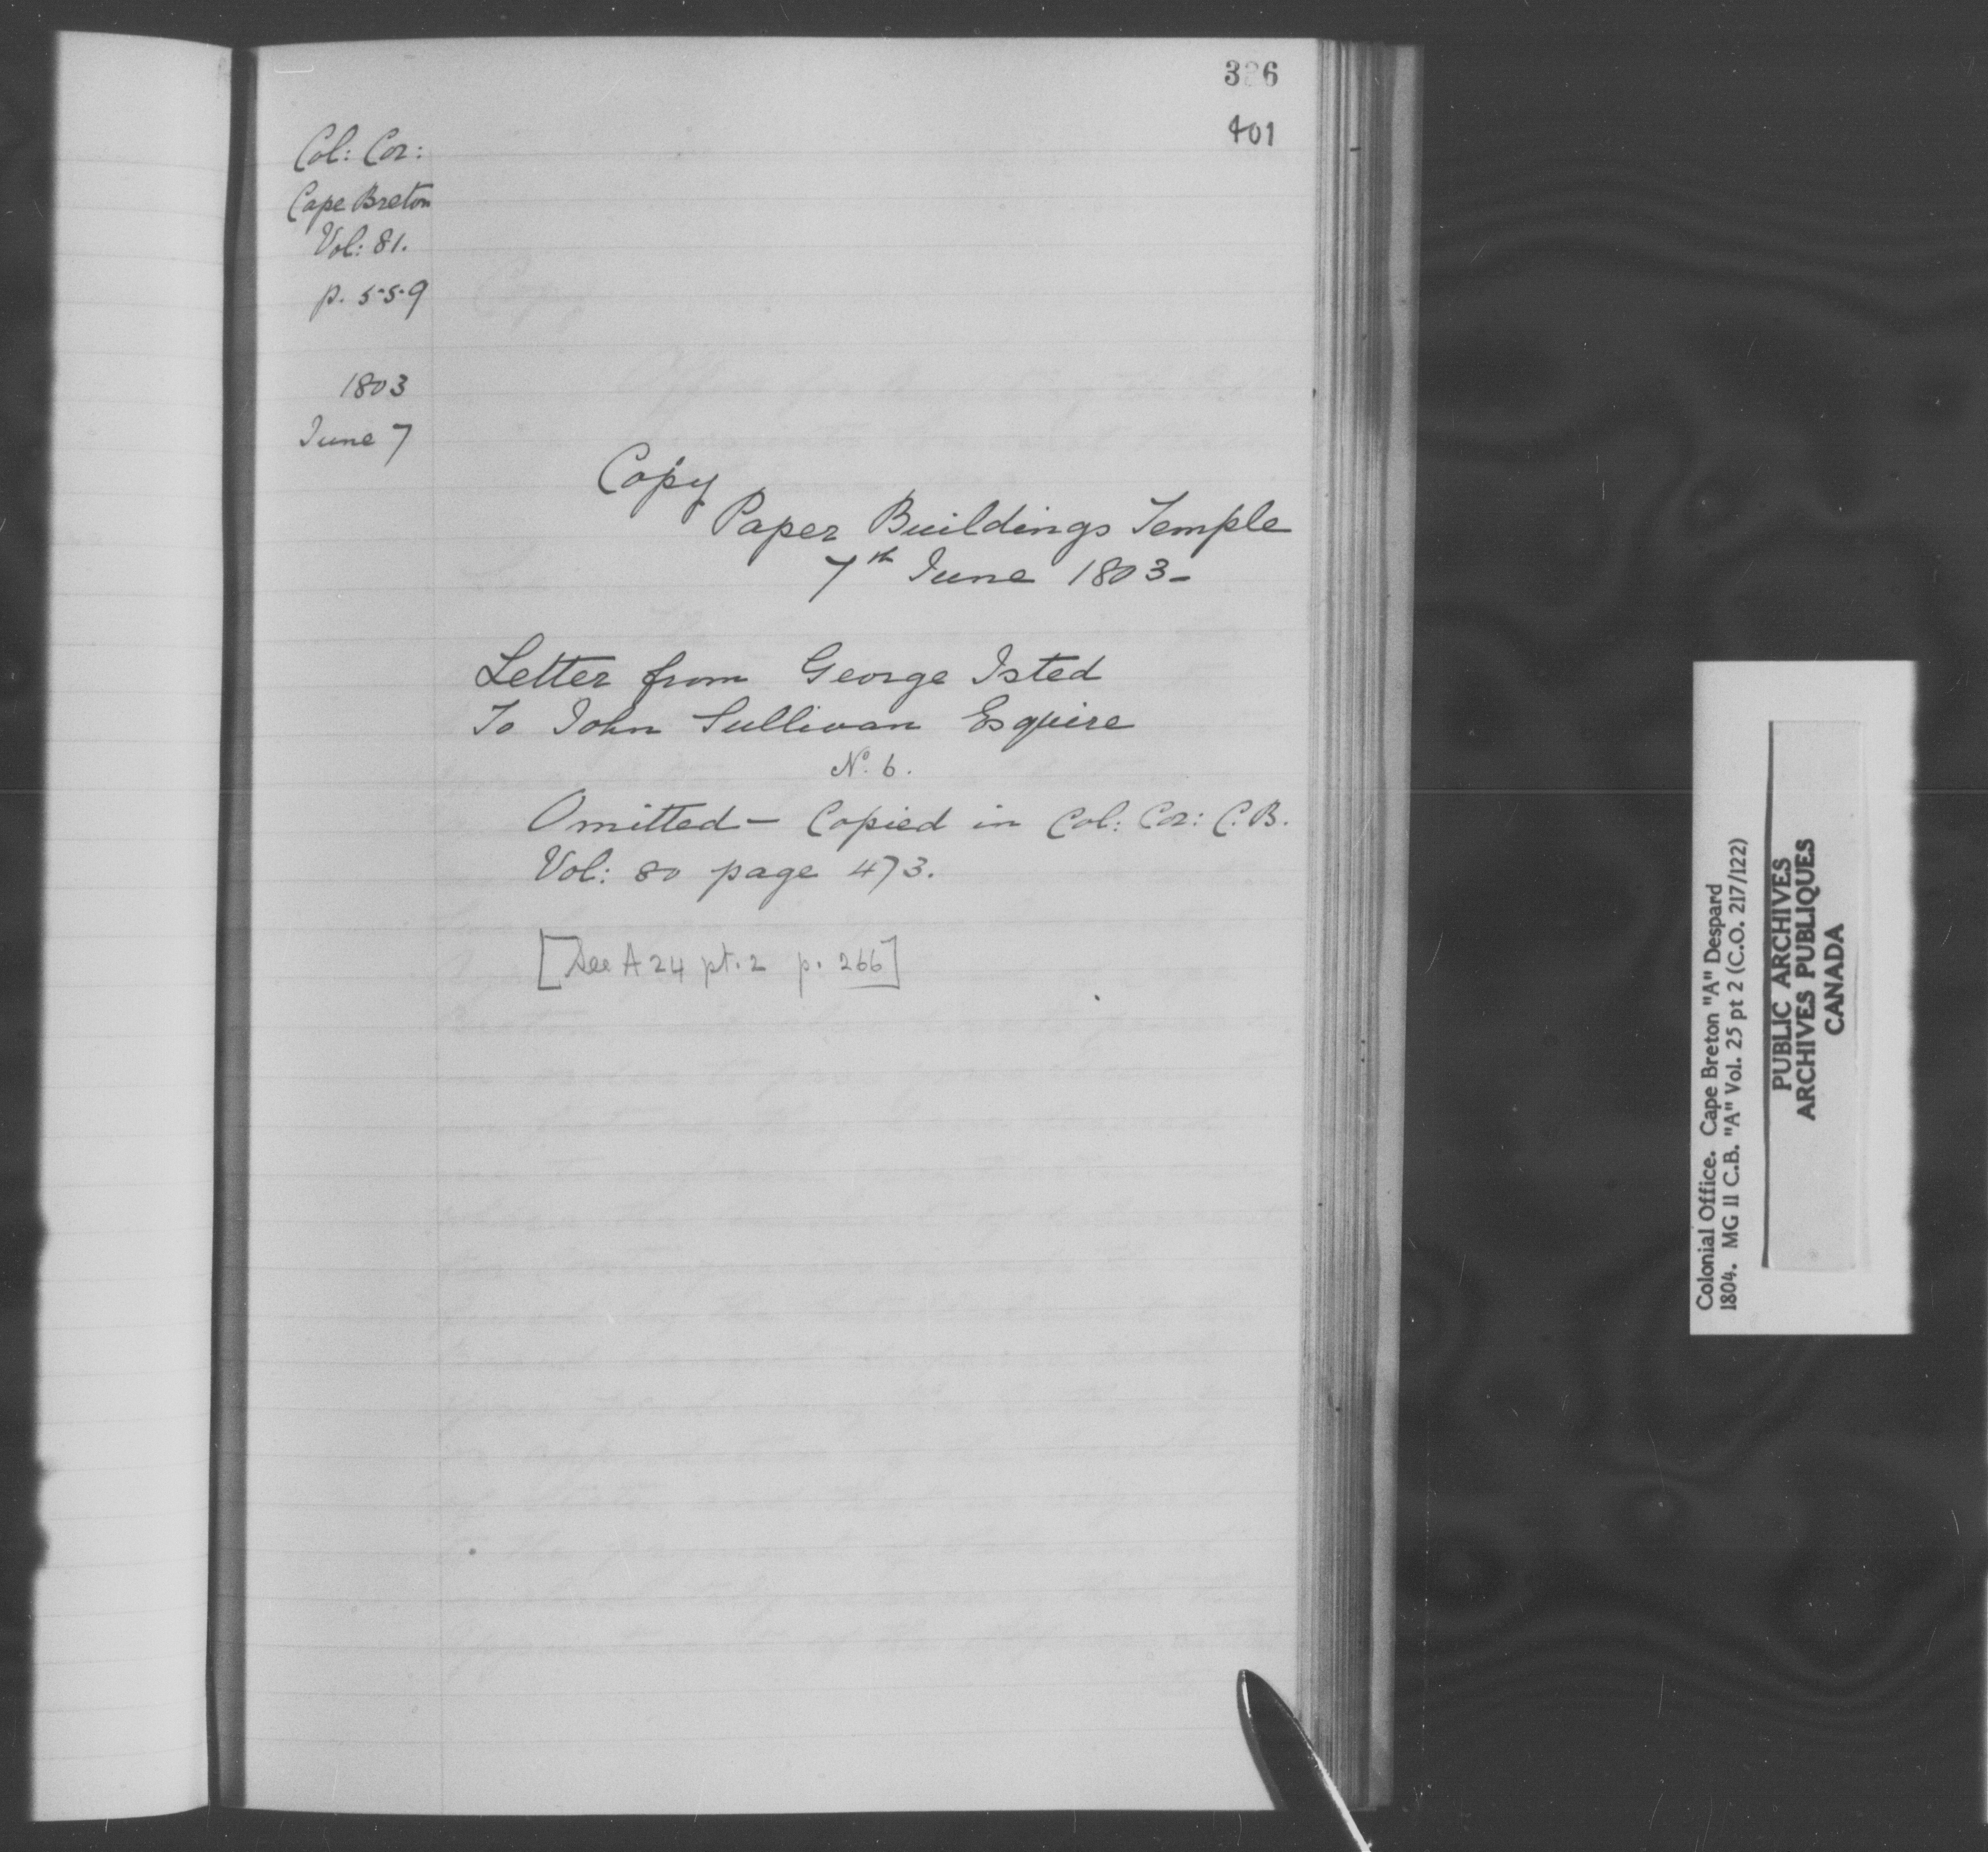 401
Col: Cor:
Cape Breton
Vol: 81.
p. 559
1803
June 7
Copy
Paper Buildings Temple
7th June 1803-
Letter from George Isted
To John Sullivan Esquire
No. 6.
Omitted - Copied in Col: Cor: C.B.
Vol: 80 page 473.
[See A 24 pt. 2 p. 266]
Colonial Office. Cape Breton "A" Despard
1804. MG 11 C.B. "A" Vol. 25 pt 2 (C.O. 217/122)
PUBLIC ARCHIVES
ARCHIVES PUBLIQUES
CANADA